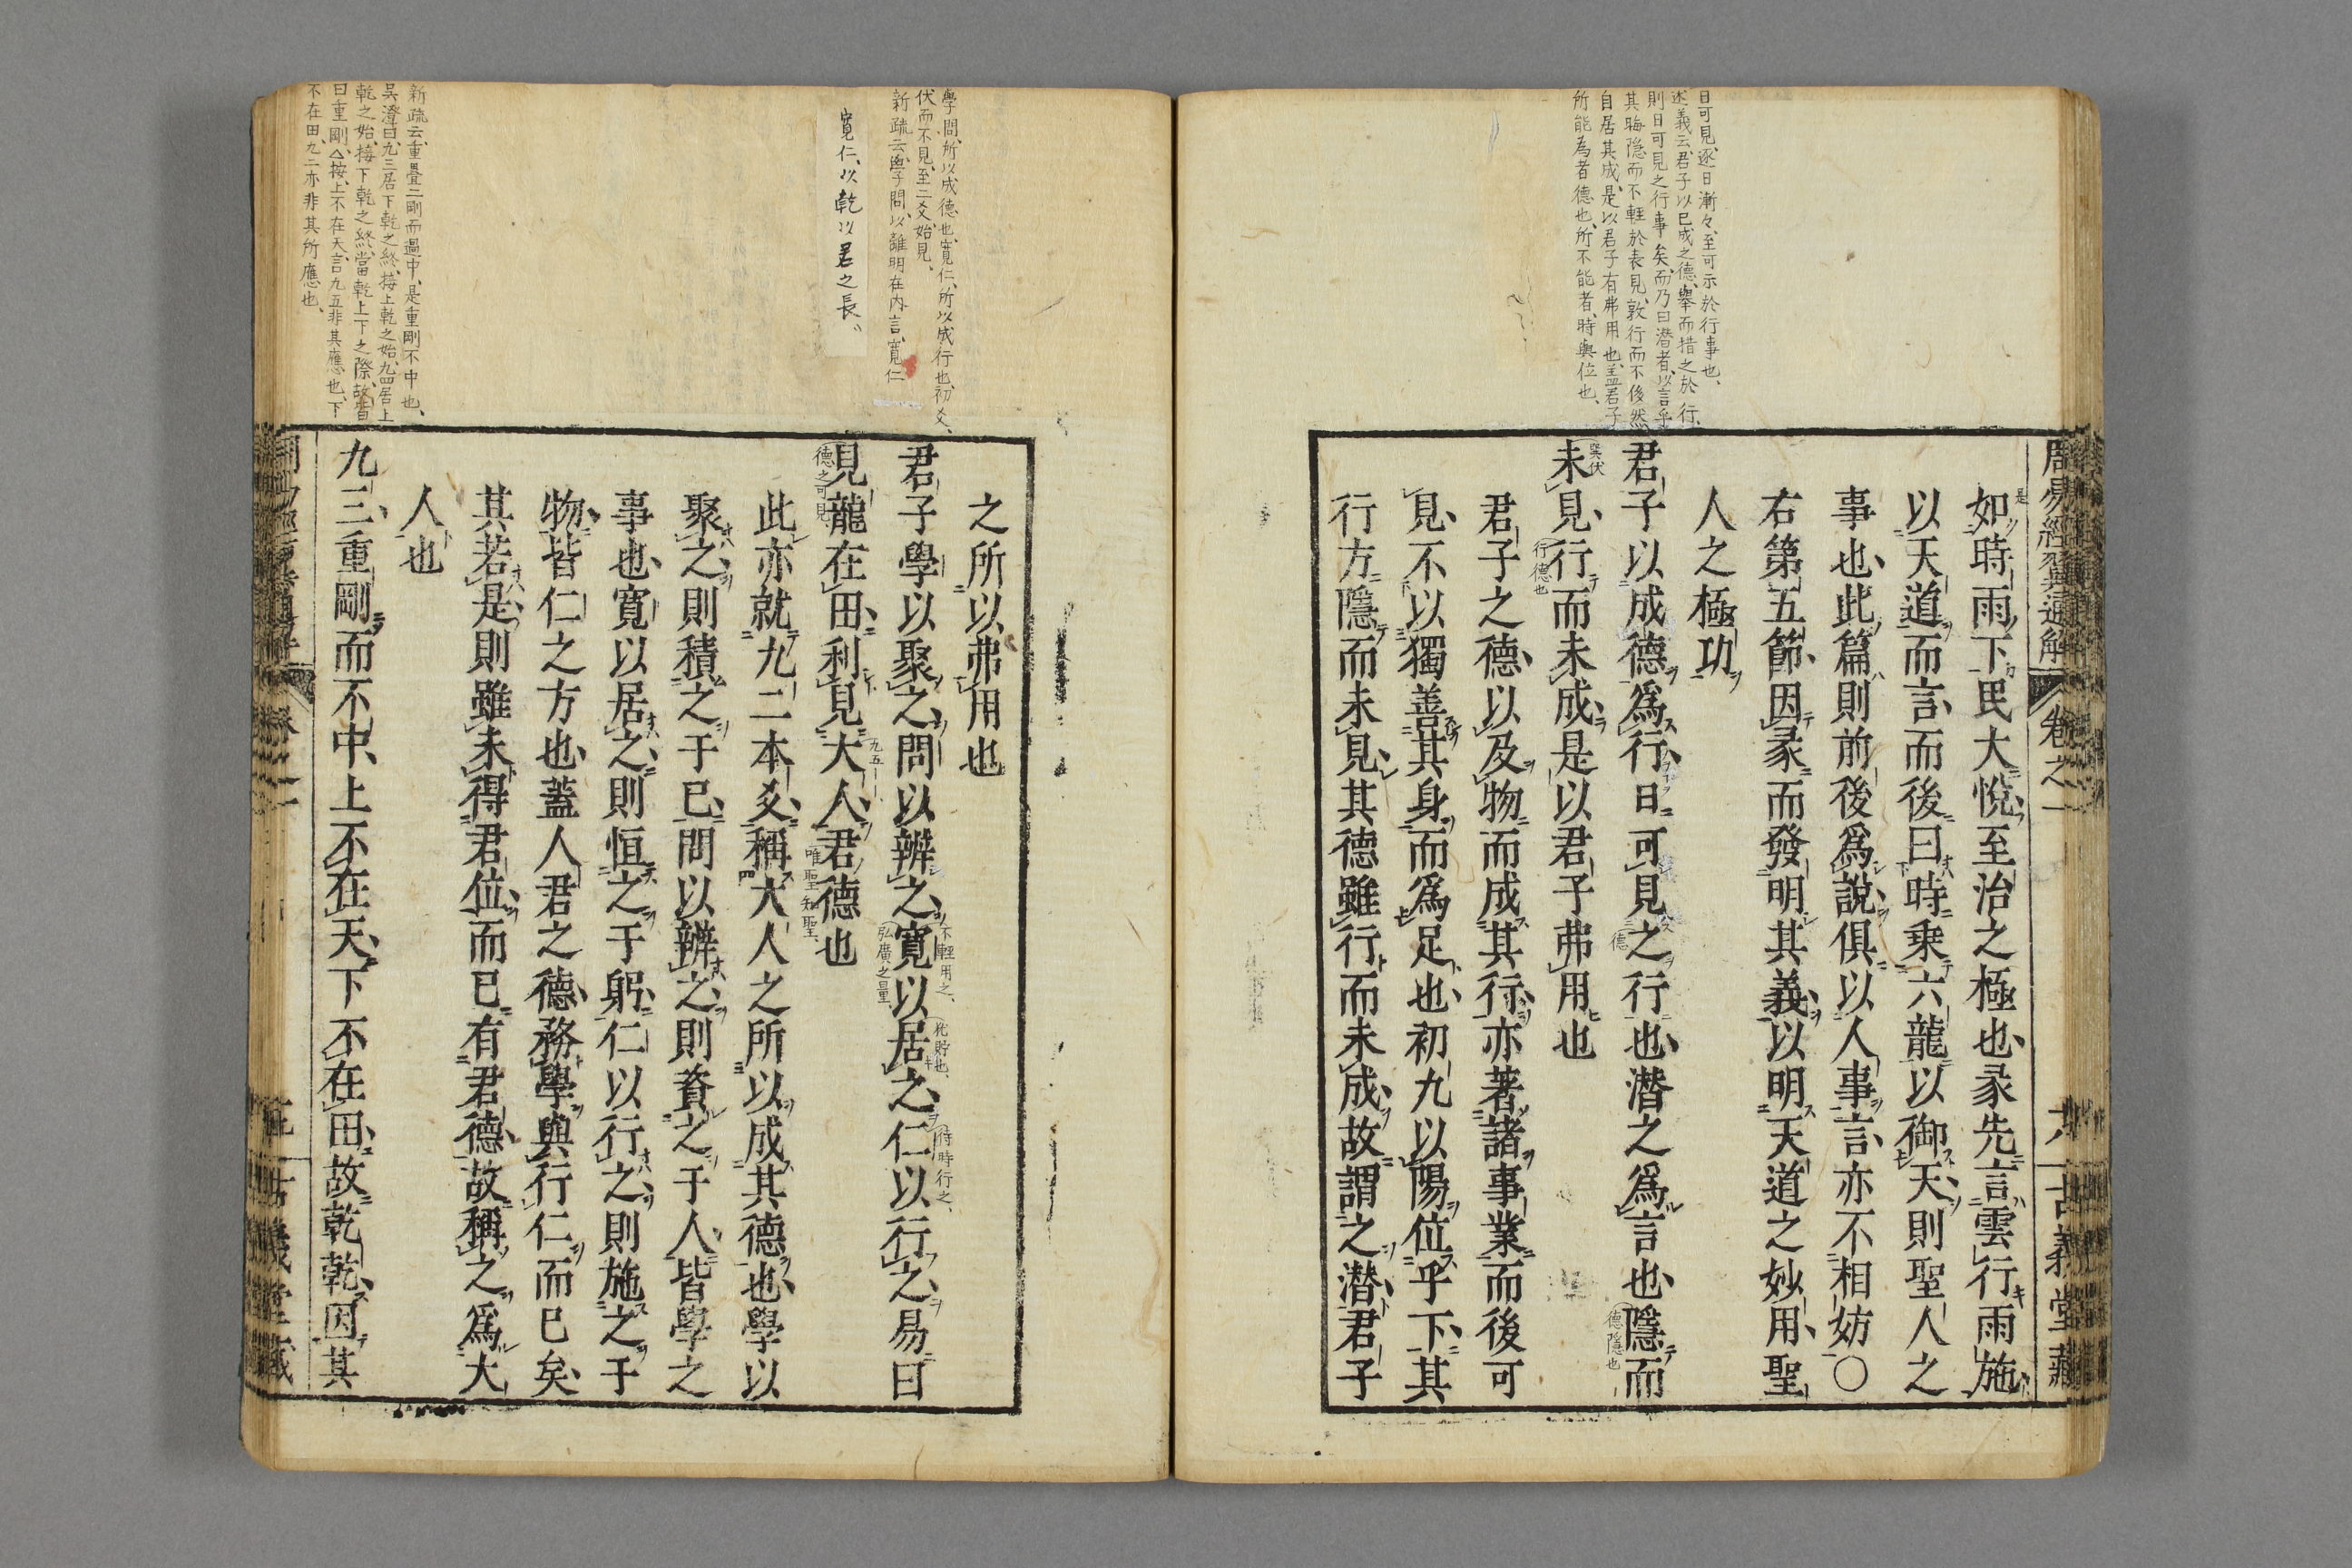 日可見、逐日漸々、至可示於行事也、
述義云、君子以已成之德、舉而措之於行、
則日可見之行事矣、而乃曰潜者、以言乎
其晦隐而不輕於表見、敦行而不後然
自居其成、是以君子有弗用也、盖君子
所能為者德也、所不能者、時與位也、
周易經翼通解
卷之一
六
古義堂藏
如時雨下民大悅至治之極也彖先言雲行雨施
是
以天道而言而後曰時乘六龍以御天則聖人之
事也此篇則前後爲說俱以人事言亦不相妨〇
右第五節因彖而發明其義以明天道之妙用聖
人之極功
君子以成德爲行日可見之行也潜之爲言也隱而
德
德隱也
未見行而未成是以君子弗用也
巽伏
行德也
君子之德以及物而成其行亦著諸事業而後可
見不以獨善其身而爲足也初九以陽位乎下其
行方隱而未見其德雖行而未成故謂之潜君子
學問、所以成德也、寬仁、所以成行也、初爻、
伏而不見、至二爻、始見、
新疏云、學問、以離明在内言、寬仁
寬仁、以乾以君之長、
新疏云、重疊二剛而過中、是重剛不中也、
吳澄曰、九三居下乾之終、接上乾之始、九四居上
乾之始、接下乾之終、當乾上下之際、故皆
曰重剛、△按、上不在天、言九五非其應也、下
不在田、九二亦非其所應也、
之所以弗用也
君子學以聚之問以辨之寬以居之仁以行之易曰
不輕用之、
佗貯也、
待時行之、
弘廣之量
見龍在田利見大人君德也
德之可見
九五
唯聖知聖
此亦就九二本爻稱大人之所以成其德也學以
聚之則積之于已問以辨之則資之于人皆學之
事也寬以居之則恒之于躬仁以行之則施之于
物皆仁之方也蓋人君之德務學與行仁而已矣
其若是則雖未得君位而已有君德故稱之爲大
人也
九三重剛而不中上不在天下不在田故乾乾因其